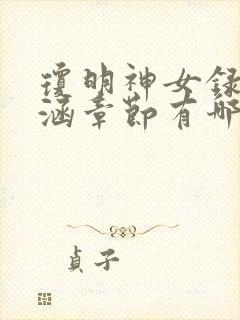 瓊明神女録
涵章節有哪
貞子